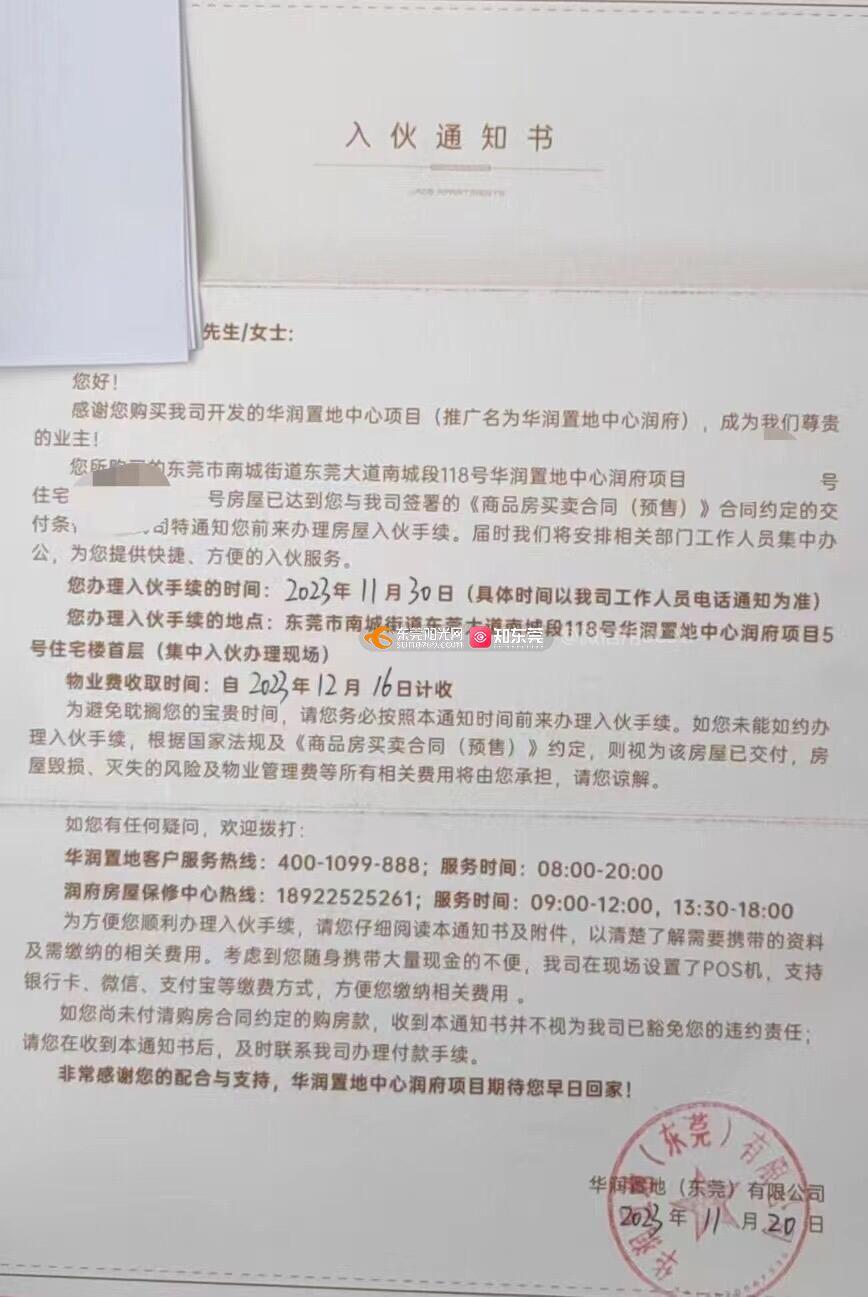 入伙通知书
先生/女士:
您好!
感谢您购买我司开发的华润置地中心项目（推广名为华润置地中心润府），成为我们尊贵
的业主!
您所购买的东莞市南城街道东莞大道南城段118号华润置地中心润府项目 号
住宅 号房屋已达到您与我司签署的《商品房买卖合同（预售）》合同约定的交
付条 司特通知您前来办理房屋入伙手续。届时我们将安排相关部门工作人员集中办
公，为您提供快捷、方便的入伙服务。
您办理入伙手续的时间：2023年11月30日（具体时间以我司工作人员电话通知为准）
您办理入伙手续的地点：东莞市南城街道东莞大道南城段118号华润置地中心润府项目5
号住宅楼首层（集中入伙办理现场）
东莞阳光网 知东莞
物业费收取时间：自2023年12月16日计收
为避免耽搁您的宝贵时间，请您务必按照本通知时间前来办理入伙手续。如您未能如约办
理入伙手续，根据国家法规及《商品房买卖合同（预售）》约定，则视为该房屋已交付，房
屋毁损、灭失的风险及物业管理费等所有相关费用将由您承担，请您谅解。
如您有任何疑问，欢迎拨打：
华润置地客户服务热线：400-1099-888；服务时间：08:00-20:00
润府房屋保修中心热线：18922525261；服务时间：09:00-12:00，13:30-18:00
为方便您顺利办理入伙手续，请您仔细阅读本通知书及附件，以清楚了解需要携带的资料
及需缴纳的相关费用。考虑到您随身携带大量现金的不便，我司在现场设置了POS机，支持
银行卡、微信、支付宝等缴费方式，方便您缴纳相关费用 。
如您尚未付清购房合同约定的购房款，收到本通知书并不视为我司已豁免您的违约责任；
请您在收到本通知书后，及时联系我司办理付款手续。
非常感谢您的配合与支持，华润置地中心润府项目期待您早日回家!
华润置地（东莞）有限公司
2023年11月20日